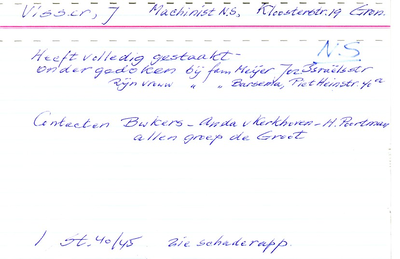 Visser, J Machinist N.S, Kloosterstr. 19 Grn.
N.S
Heeft volledig gestaakt -
ondergedoken bij fam Meijer Joz Israëlsstr
Zijn vrouw " " Barsema, Piet Heinstr. 40a
Contacten Buikers - Anda v Kerkhoven - H. Poortman
allen groep de Groot
1 st. 40/45 zie schaderapp.